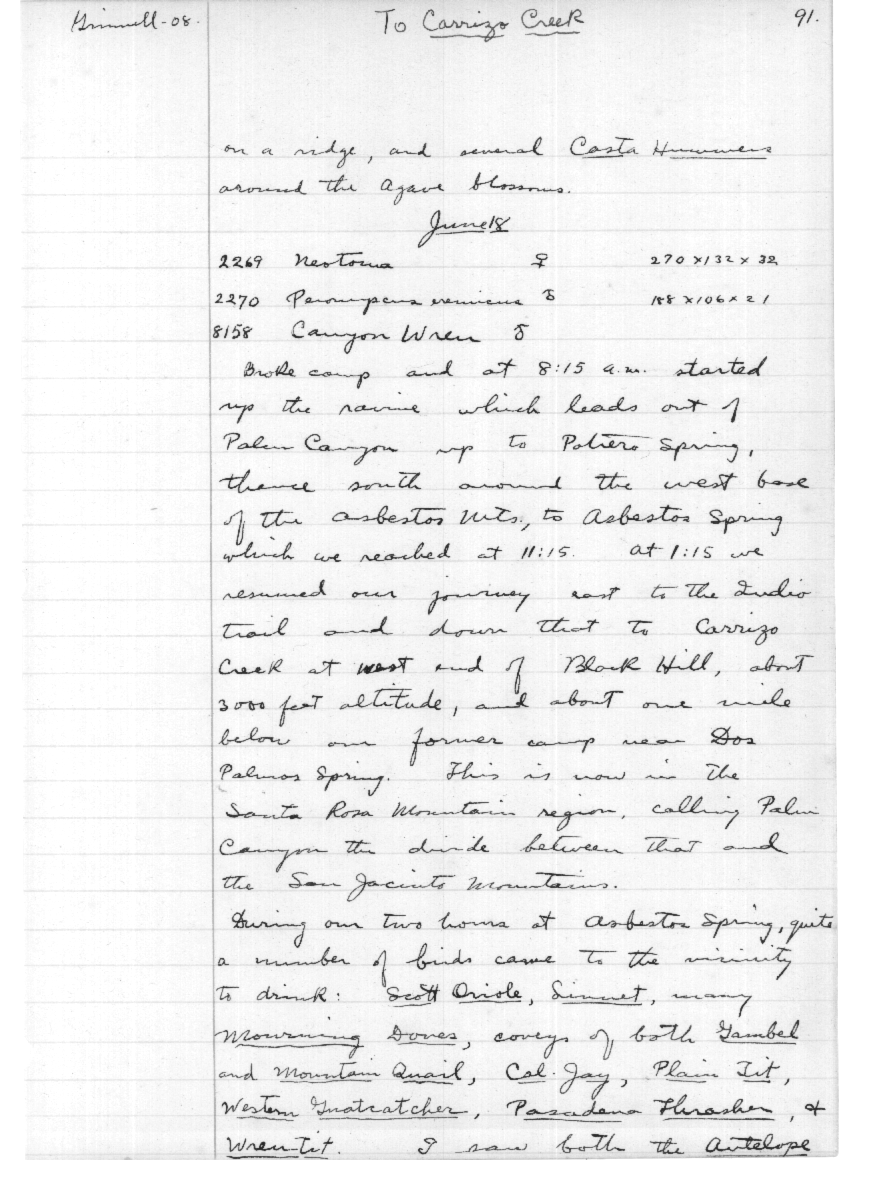 Grinnell-08.
To Carrizo Creek
91.
on a ridge, and several Costa Hummers
around the Agave blossoms.
June 18
2269 Neotoma ♀ 270 x 132 x 32
2270 Peromyscus eremicus ♂ 188 x 106 x 21
8158 Canyon Wren ♂
Broke camp and at 8:15 a.m. started
up the ravine which leads out of
Palm Canyon up to Potrero Spring,
thence south around the west base
of the Asbestos Mts., to Asbestos Spring
which we reached at 11:15. At 1:15 we
resumed our journey east to the Indio
trail and down that to Carrizo
Creek at west end of Black Hill, about
3000 feet altitude, and about one mile
below our former camp near Dos
Palmos Spring. This is now in the
Santa Rosa Mountain region, calling Palm
Canyon the divide between that and
the San Jacinto Mountains.
During our two hours at Asbestos Spring, quite
a number of birds came to the vicinity
to drink: Scott Oriole, Linnet, many
Mourning Doves, coveys of both Gambel
and Mountain Quail, Cal. Jay, Plain Tit,
Western Gnatcatcher, Pasadena Thrasher, &
Wren-tit. I saw both the Antelope